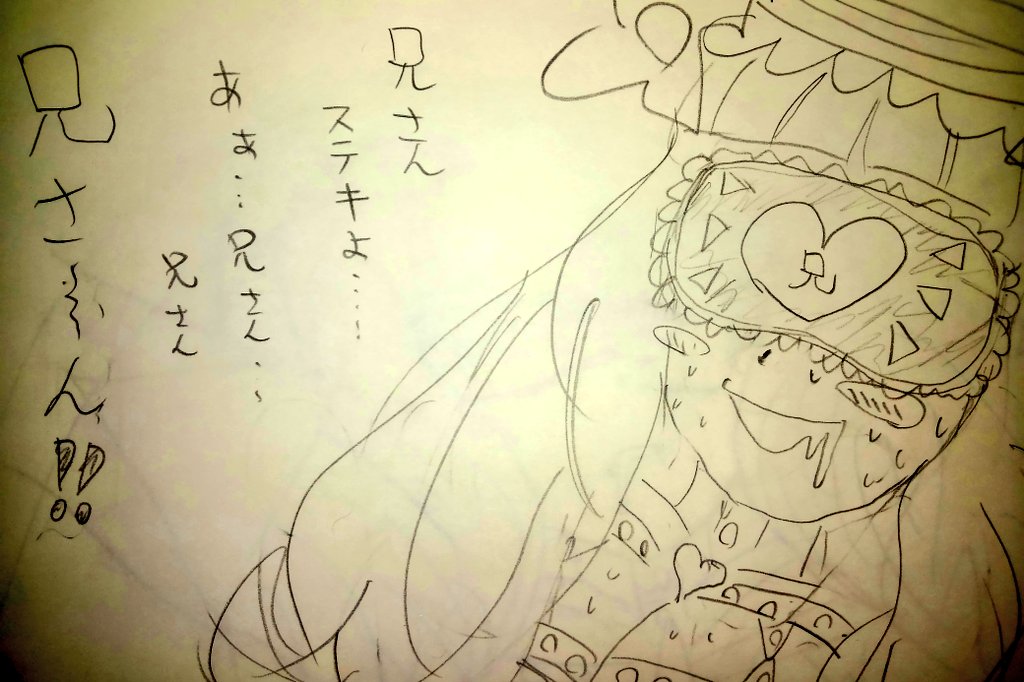 兄さん
ステキよ…!
あぁ…兄さん…
兄さん
兄さぁん!!
兄